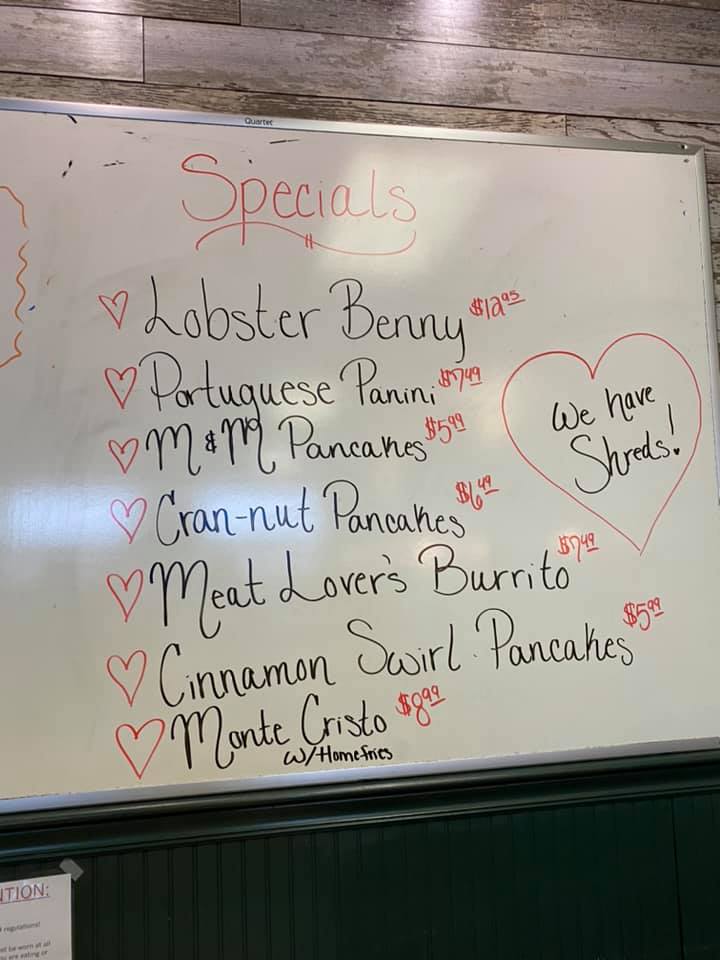 Quartet
Specials
Lobster Benny $12.95
Portuguese Panini $7.49
M&M Pancakes $5.99
Cran-nut Pancakes $6.49
Meat Lover's Burrito $7.49
Cinnamon Swirl Pancakes $5.99
Monte Cristo $8.99
w/Homefries
We have
Shreds!
NTION:
regulations!
be worn at all
are eating or